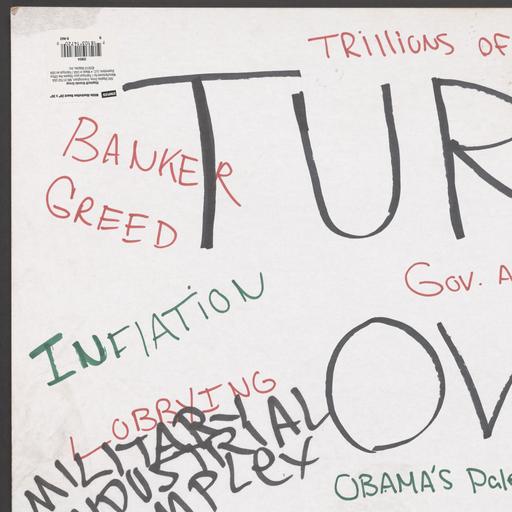 TRillIONS OF
TUR
BANKER
GREED
Gov. A
INFLATION
OV
LOBBYING
MILITARY IAL
INDUSTR
MPLEX
OBAMA'S Pale